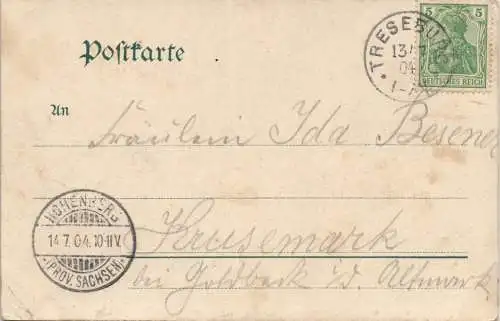 Postkarte
5 5
DEUTSCHES REICH
TRESEBURG
13/7
04
An
Fräulein Ida Besener
HOHENBERG
14.7.04.10-11V.
*(PROV. SACHSEN)*
Krusemark
bei Goldbeck i/d. Altmark